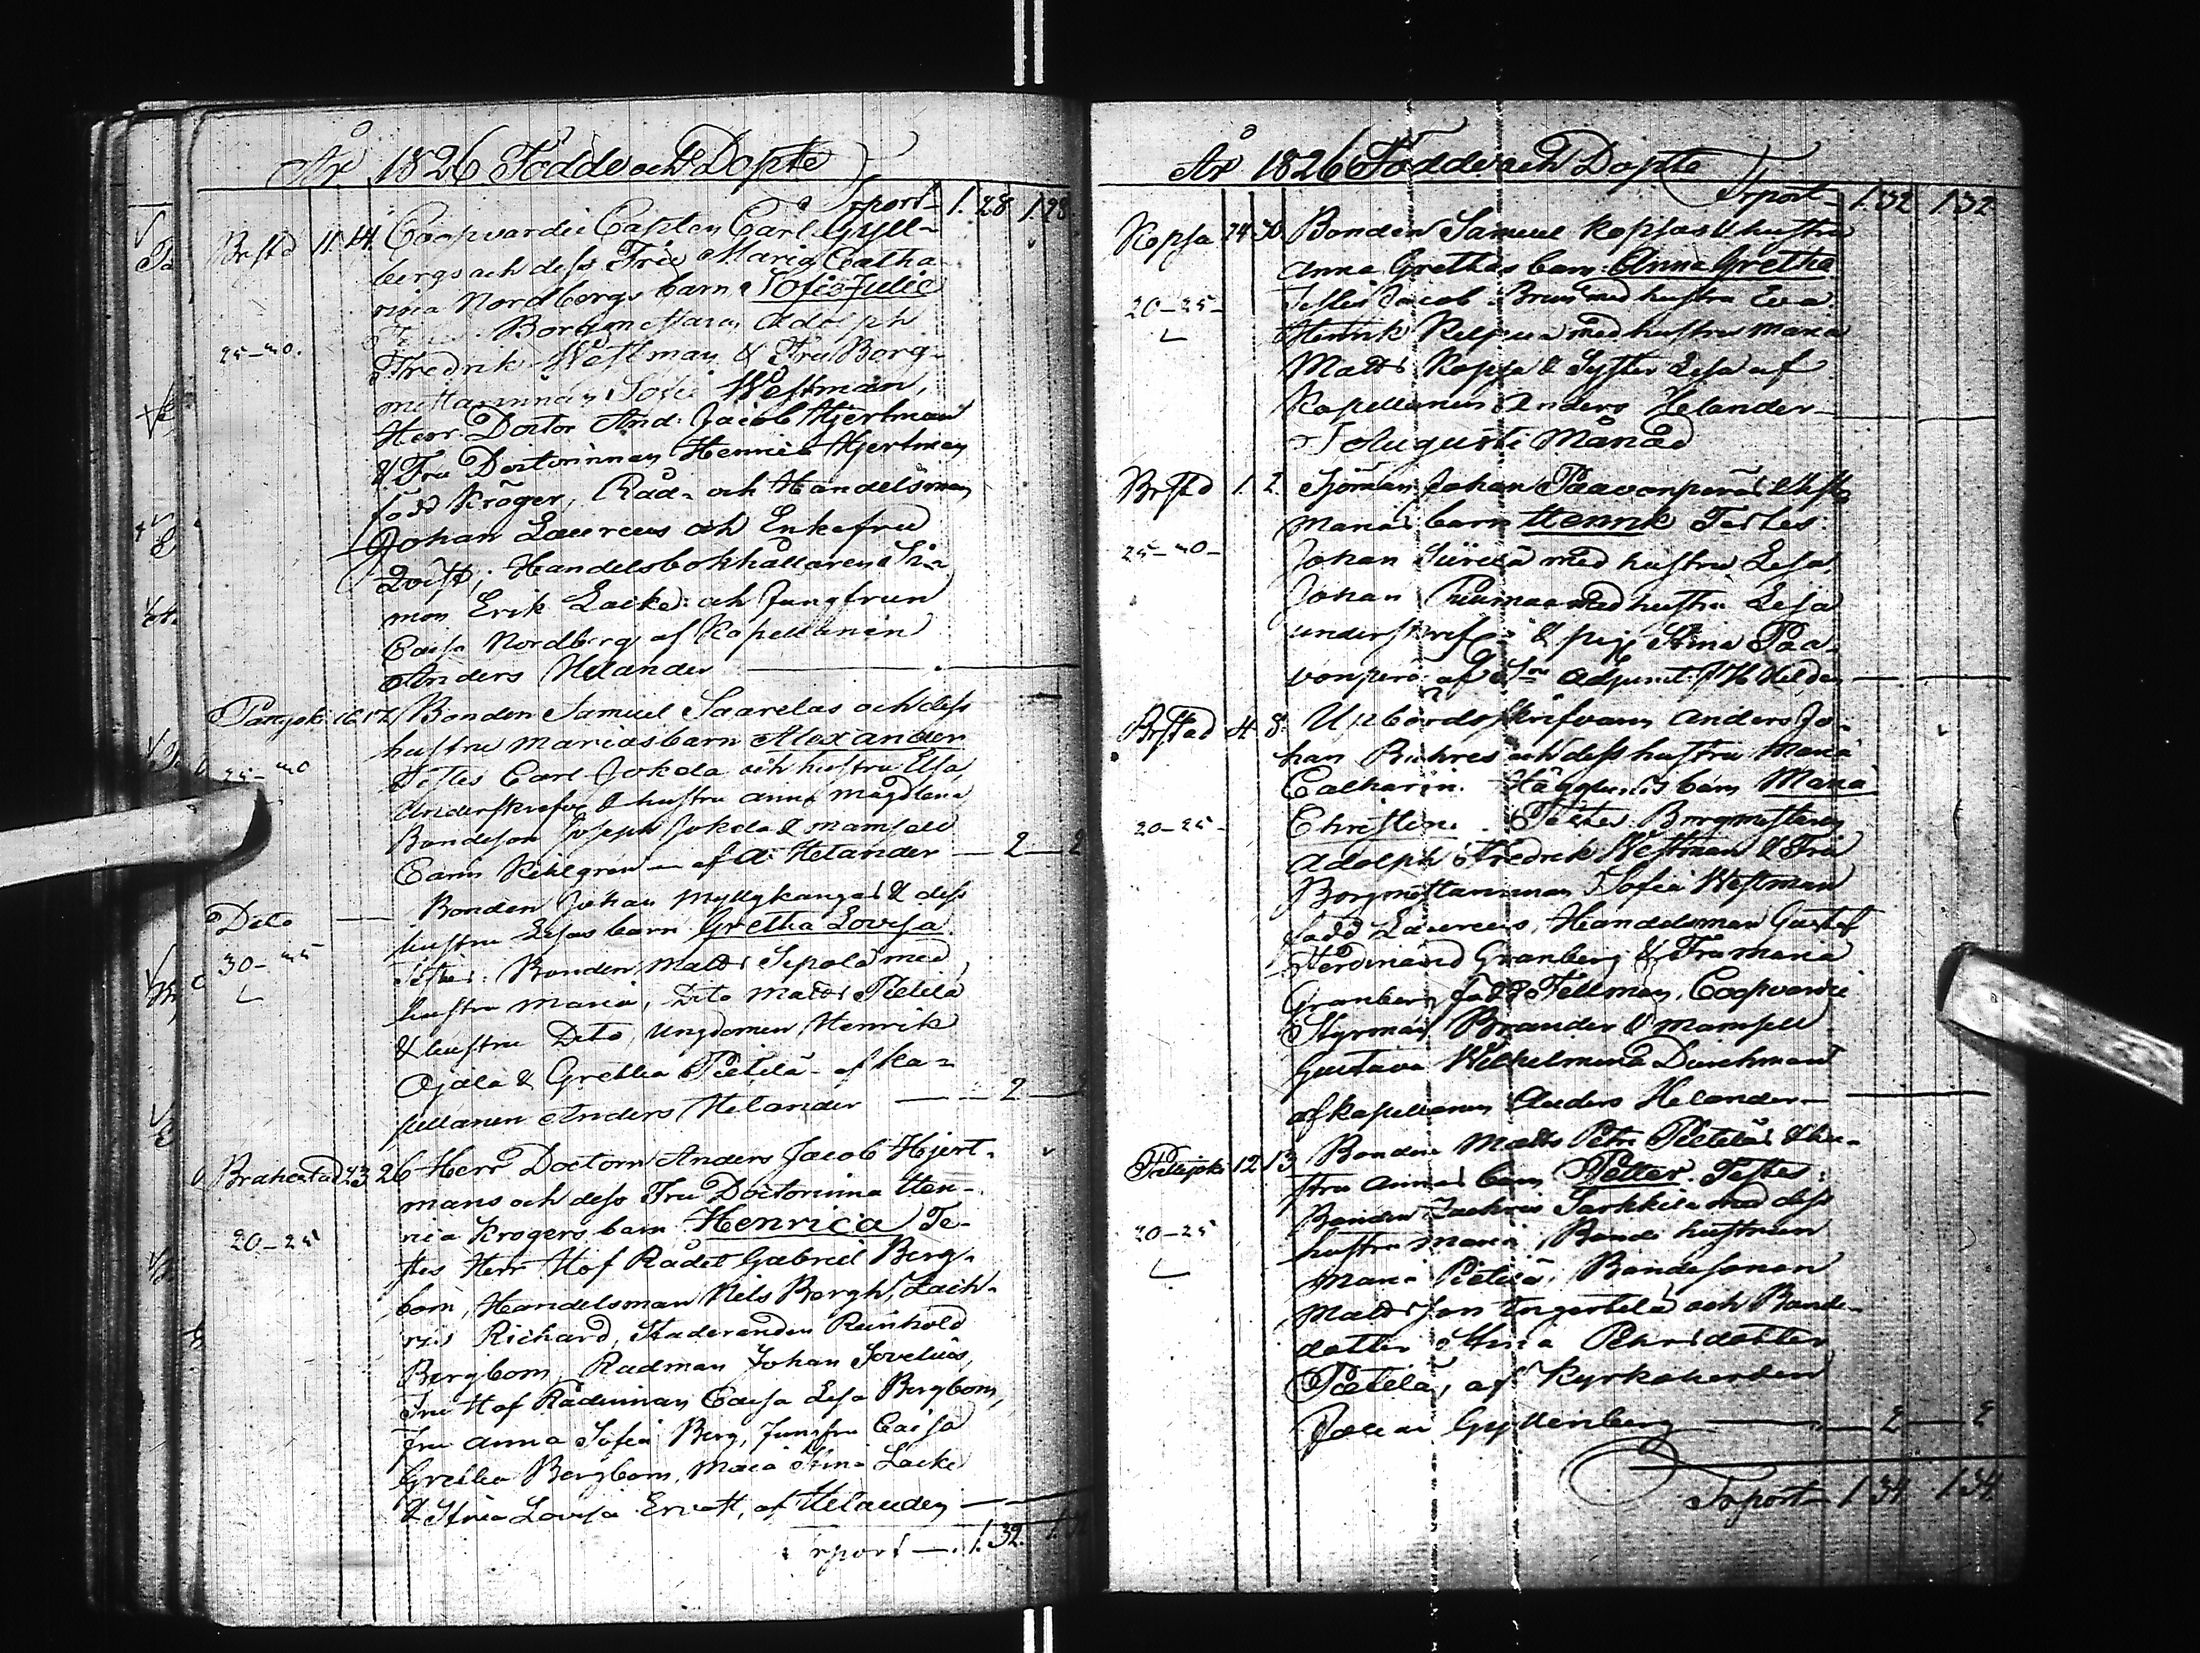 År 1826 Födde och Döpte
Trsport 1. 28 1 28
Brstd 11 14 Coopvardie Capten Carl Gyll-
bergs och dess Fru Maria Catha-
rina Nordbergs barn Sofia Julie
25-30. Borgmästaren Adolph
Fredrik Westman & Fru Borg-
mästarinnan Sofie Westman,
Herr Doctor And: Jacob Hjertman
& Fru Doctorinnan Henrica Hjertman
född Kröger, Råd- och Handelsman
Johan Laureus och Enkefru
Qvist, Handelsbokhållaren Si-
mon Erik Lacke och Jungfrun
Caisa Nordberg af Kapellanen
Anders Helander
16 17 Bonden Samuel Saarelas och dess
hustru Marias barn Alexander
Testes Carl Jokela och hustru Elsa,
hustru Anna Magdlena
Bondeson Joseph Jokela & Mamsell
Carin Kihlgren - af A: Helander 2 2
Dito Bonden Johan Myllykangas & dess
hustru Lisas barn Gretha Lovisa
30-35 Testes: Bonden Matts Sepola med
hustru Maria, Dito Matts Pietilä
& hustru Dito, Ungdomen Henrik
Ojala & Gretha Pietilä - af Ka-
pellanen Anders Helander 2
Brahestad 23 26 Herr Doctorn Anders Jacob Hjert-
mans och dess Fru Doctorinna Hen-
rica Krogers barn Henrica Te-
20-25 stes Herr Hof Rådet Gabriel Berg-
bom, Handelsman Nils Bergh, Zach-
ris Richard, Studeranden Reinhold
Bergbom, Rådman Johan Sovelius,
Fru Hof Rådinnan Caisa Lisa Bergbom,
Fru Anna Sofia Berg, Jungfru Caisa
Gretha Bergbom, Maia Stina Lacke
& Stina Lovisa, af Helander
Trsport 1. 32.
År 1826 Födde och Döpte
Trsport 1 32 1 32
Kopsa 24 30 Bonden Samuel Kopsas & hustru
Anna Grethas barn: Anna Gretha
20-25- Testes Jacob Bruus med hustru Eva
Henrik Kelpua med hustru Maria
Matts Kopsa & Syster Lisa af
Kapellanen Anders Helander
I Augusti Månad
Brstd 1. 2. Sjöman Johan Paavonperäs &
Marias barn Henrik Testes:
25-30- Johan med hustru Lisa.
Johan med hustru Lisa
& pig. Stina Paa-
vonperä af Adjunct
Brstad 4 8. Upbördsskrifvaren Anders Jo-
han Ruhres och dess hustru Maria
Catharin. Häggmans barn Maria
20-25- Christina. Testes Borgmästaren
Adolph Fredrik Westman & Fru
Borgmästarinnan Sofia Westman
född Laureus, Handelsman Gustaf
Ferdinand Granberg & Fru Maria
Granberg född Fellman, Coopvardie
Styrman Brander & Mamsell
Gustava Wilhelmina Durchman
af kapellanen Anders Helander
12 13 Bonden Matts Petri Pietiläs & hu-
stru Annas barn Petter. Testes:
Bonden Zachris Tarkkila med dess
20-25 hustru Maria, Bonde hustrun
Maria Pietilä, Bondesonen
Matts och Bonde-
dotter Stina Pehrsdotter
Pietilä, af Kyrkoherden
Johan Gyllenberg 2 2
Trsport 1 34 1 34